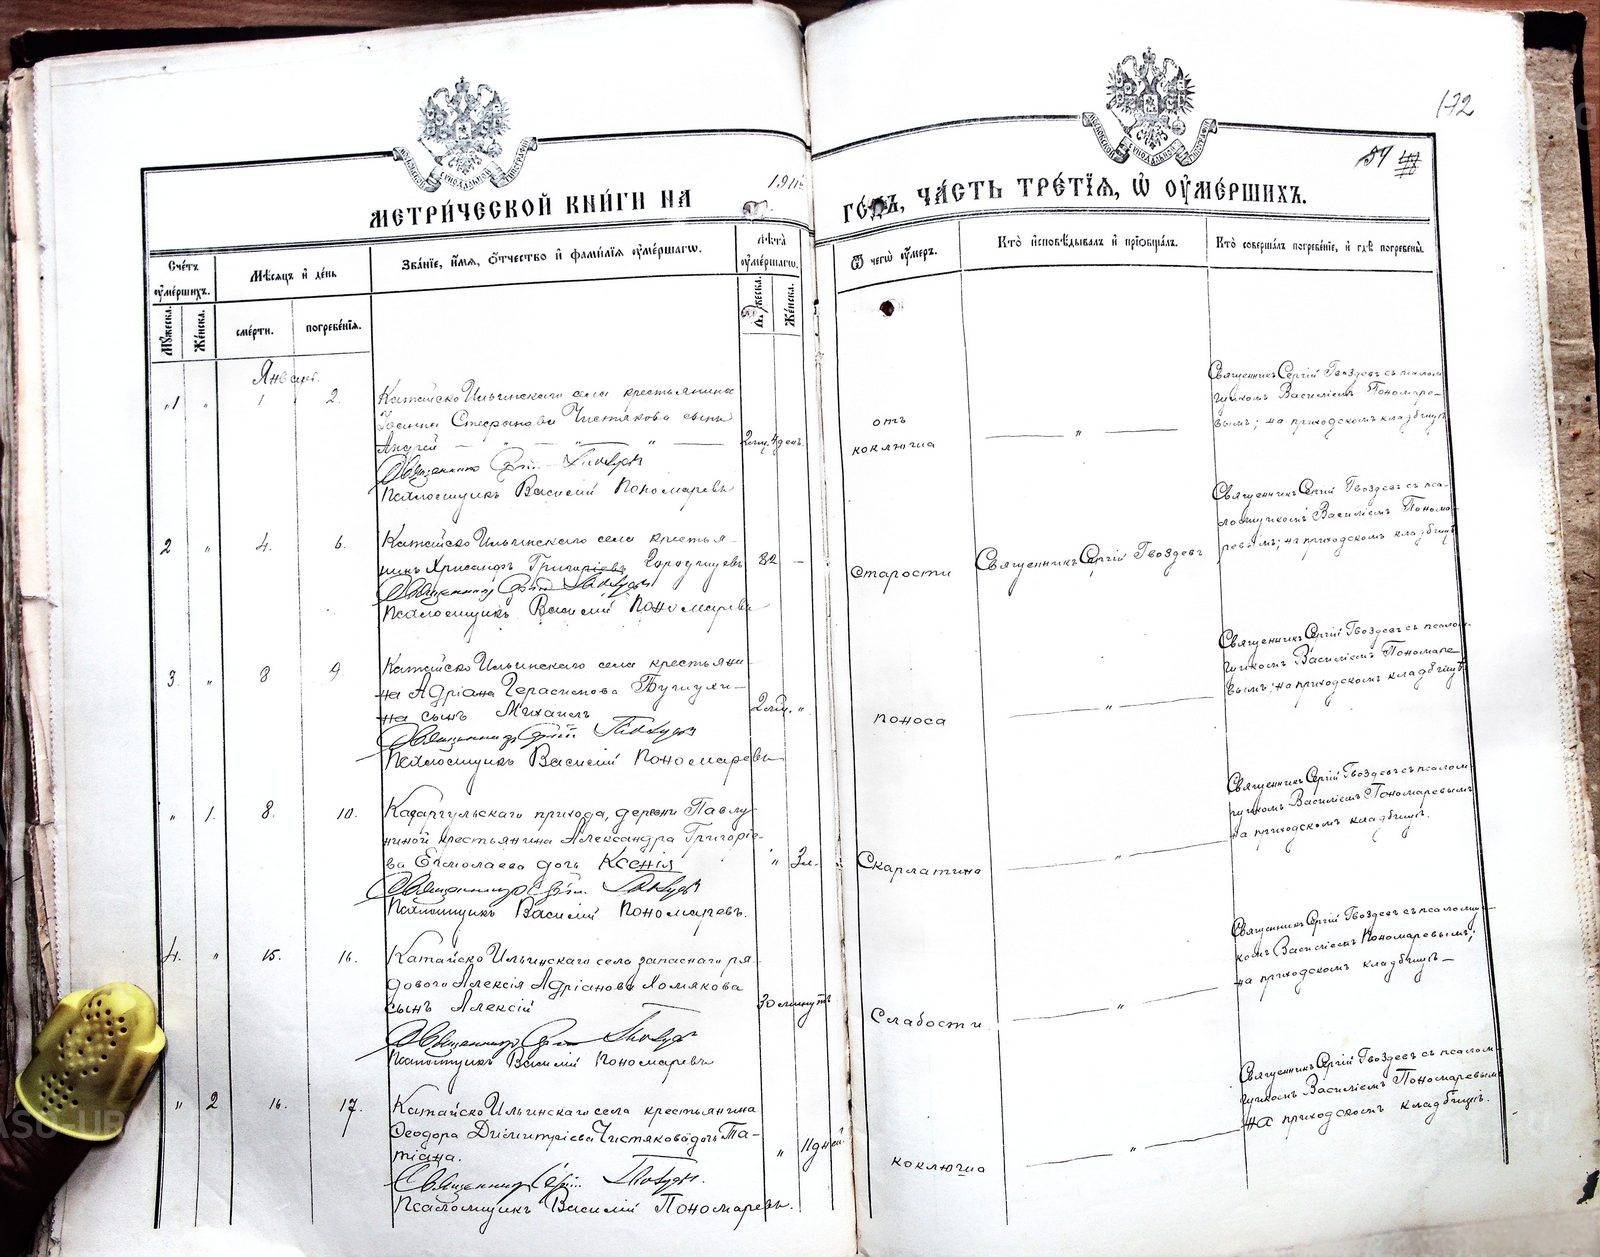 172
МЕТРИ́ЧЕСКОЙ КНИ́ГИ НА
ГО́ДЪ, ЧА́СТЬ ТРЕ́ТІѦ, Ѽ ОУМЕ́РШИХЪ.
Сче́тъ оуме́ршихъ.
Мꙋжеска.
Же́нска.
Мѣсѧцъ и́ де́нь
сме́рти.
погребе́нїѧ.
Зва́нїе, и́мѧ, о́тчество и́ фами́лїѧ оуме́ршагѡ.
Лѣта оуме́ршагѡ.
Мꙋжеска.
Же́нска.
Ѿ чегѡ̀ оу́меръ.
Кто̀ и́сповѣ́дывалъ и́ прїѻбща́лъ.
Кто̀ соверша́лъ погребе́нїе, и́ гдѣ̀ погребены̀.
Январь.
1 „ 1 2.
Катайско Ильинскаго села крестьянина
Іоанна Стефанова Чистякова сынъ
Андрей
Псаломщикъ Василій Пономаревъ
2 мц. 4 дня.
отъ
коклюша
„
Священникъ Сергій Гвоздевъ съ псалом
щикомъ Василіемъ Пономаре-
вымъ; на приходскомъ кладбищѣ
2 „ 4. 6.
Катайско Ильинскаго села крестья-
нинъ Хрисанфъ Григоріевъ Городищевъ
Псаломщикъ Василій Пономаревъ
82 —
Старости
Священникъ Сергій Гвоздевъ
Священникъ Сергій Гвоздевъ съ пса-
ломщикомъ Василіемъ Понома-
ревымъ; на приходскомъ кладбищѣ
3. „ 8 9
Катайско Ильинскаго села крестьяни-
на Адріана Герасимова
на сынъ Михаилъ
Псаломщикъ Василій Пономаревъ
поноса
„
Священникъ Сергій Гвоздевъ съ псалом
щикомъ Василіемъ Пономаре
вымъ; на приходскомъ кладбищѣ
„ 1. 8. 10.
прихода, деревни Павлу
ниной крестьянина Александра Григоріе-
ва Ермолаева дочь Ксенія
Псаломщикъ Василій Пономаревъ.
„ 3 л.
Скарлатина
„
Священникъ Сергій Гвоздевъ съ псалом
щикомъ Василіемъ Пономаревымъ
на приходскомъ кладбищѣ.
4. „ 15. 16.
Катайско Ильинскаго села запаснаго ря-
дового Алексія Адріанова Хомякова
сынъ Алексій
Псаломщикъ Василій Пономаревъ
30 минутъ
Слабости
„
Священникъ Сергій Гвоздевъ съ псаломщи-
комъ Василіемъ Пономаревымъ;
на приходскомъ кладбищѣ—
„ 2 16. 17.
Катайско Ильинскаго села крестьянина
Ѳеодора Димитріева Чистякова дочь Та-
тіана.
Псаломщикъ Василій Пономаревъ.
„ 11 дней
коклюша
„
Священникъ Сергій Гвоздевъ съ псалом-
щикомъ Василіемъ Пономаревымъ
на приходскомъ кладбищѣ.